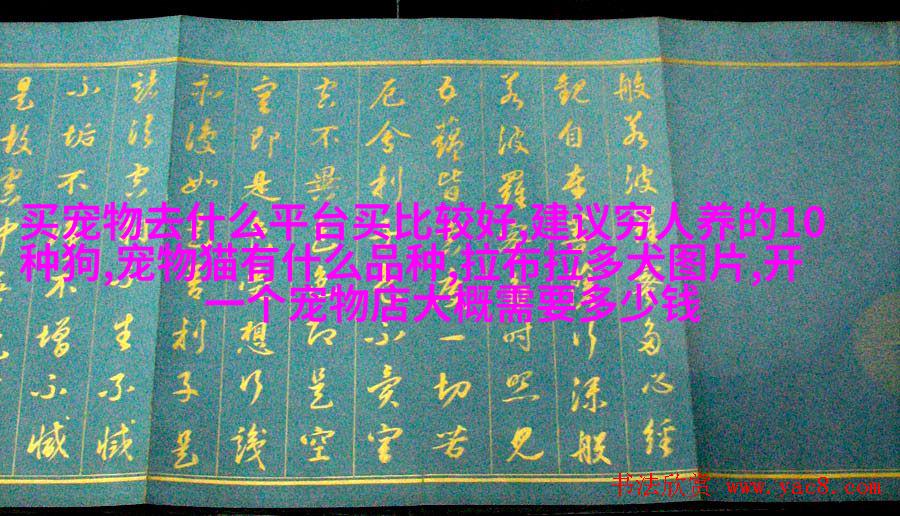 买宠物去什么平台买比较好,建议穷人养的10
种狗,宠物猫有什么品种,拉布拉多犬图片,开
一个宠物店大概需要多少钱
般若波多心経
觀自在行深般
若波羅時照見
五蘊皆度一切苦
厄舍利不異空
空不異即是空
空即是想行識
亦復如是舍利子是
諸法空不生不滅
不垢不不增不減
是故空中
书法欣赏 www.yac8.com